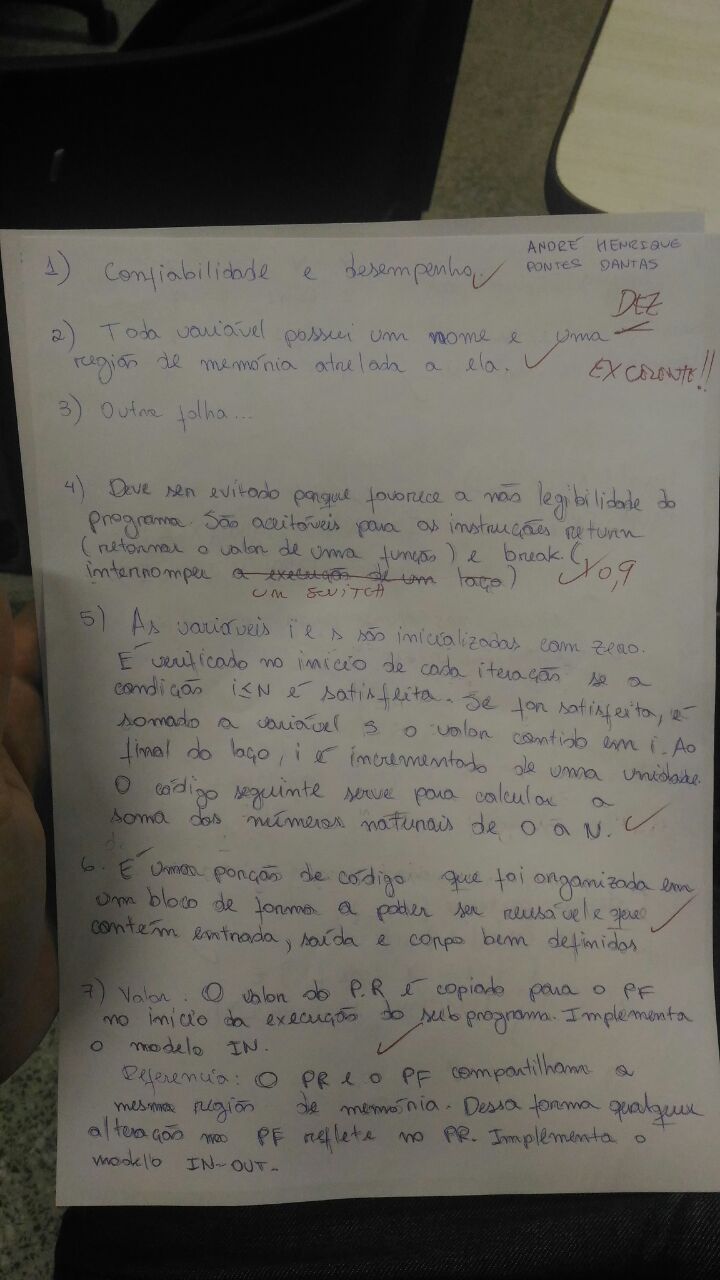 ANDRÉ HENRIQUE
PONTES DANTAS
1) Confiabilidade e desempenho.
DEZ
EXCELENTE!!
2) Toda variável possui um nome e uma
região de memória atrelada a ela.
3) Outra folha...
4) Deve ser evitado porque favorece a não legibilidade do
programa. São aceitáveis para as instruções return
(retornar o valor de uma função) e break (
interromper a execução de um laço)
UM SWITCH
0,9
5) As variáveis i e s são inicializadas com zero.
É verificado no início de cada iteração se a
condição i≤N é satisfeita. Se for satisfeita, é
somado a variável s o valor contido em i. Ao
final do laço, i é incrementado de uma unidade.
O código seguinte serve para calcular a
soma dos números naturais de 0 a N.
6. É uma porção de código que foi organizada em
um bloco de forma a poder ser reusável e que
contém entrada, saída e corpo bem definidos
7) Valor. O valor do P.R é copiado para o PF
no início da execução do subprograma. Implementa
o modelo IN.
Referencia: O PR e o PF compartilham a
mesma região de memória. Dessa forma qualquer
alteração no PF reflete no PR. Implementa o
modelo IN-OUT.